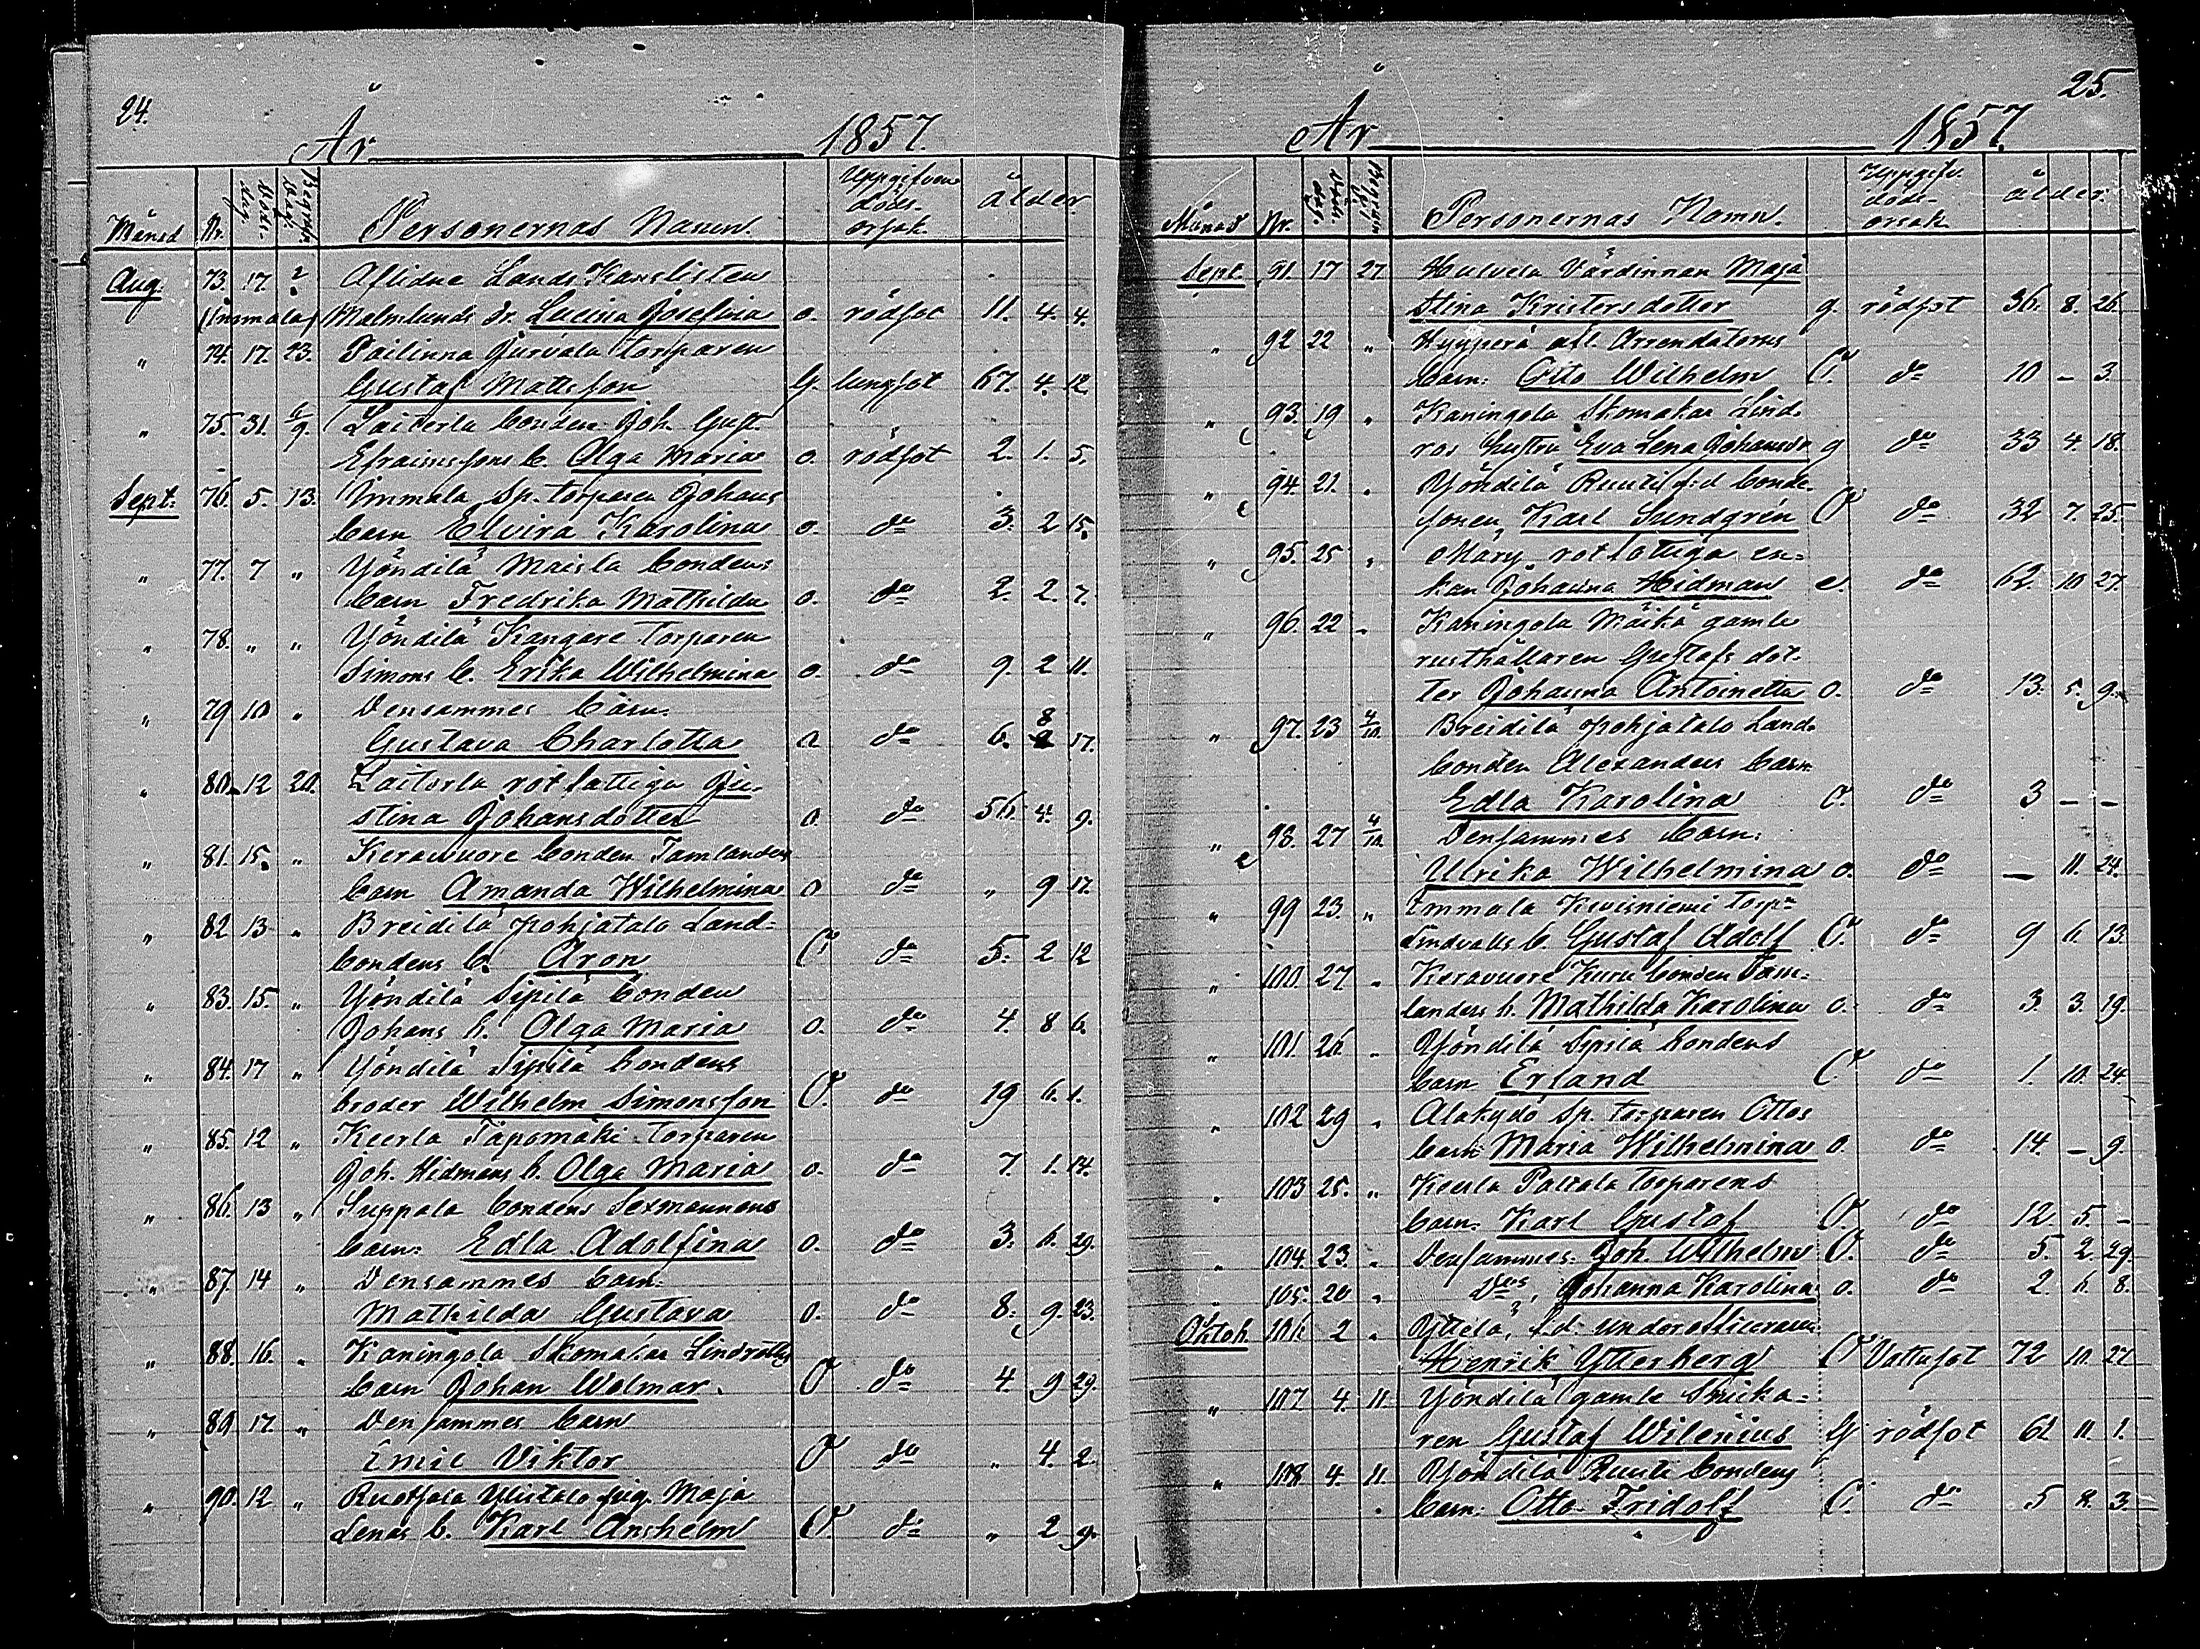 24.
År 1857.
Månad Nr. Döds-dag. Begrafn. dag. Personernas Namn. Uppgifven döds-orsak. ålder.
Aug. 73. 17 2 Aflidne Lands Kanslisten
(Immala) Malmlunds dr. Lucina Josefina o. rödsot 11. 4. 4.
" 74. 17. 23. Pailinna Jurvala torparen
Gustaf Mattsson G. lungsot 67. 4. 12
" 75. 31. 6/9. Laiterla bonden Joh. Gust.
Efraimssons b. Olga Maria o. rödsot 2. 1. 5.
Sept. 76. 5. 13. Immala Sp. torparen Johans
barn Elvira Karolina o. do 3. 2 15.
" 77. 7 " Yöndilä Maisla bondens
barn Fredrika Mathilda o. do 2. 2. 7.
" 78. " " Yöndilä Kangare torparen
Simons b. Erika Wilhelmina o. do 9. 2 11.
" 79 10 " Densammes barn.
Gustava Charlotta o do 6. 8 17.
" 80. 12 20. Laiterla rotfattiga Ju-
stina Johansdotter o. do 56. 4. 9.
" 81. 15. " Keravuore bonden Tamlanders
barn Amanda Wilhelmina o do " 9 17.
" 82 13 " Breidilä pohjatalo Land-
bondens b. Aron O do 5. 2 12
" 83. 15. " Yöndilä Sipilä bonden
Johans b. Olga Maria o. do 4. 8 6.
" 84. 17 " Yöndilä Sipilä bondens
broder Wilhelm Simonsson O. do 19 6. 1.
" 85. 12 " Keerla Täpomäki torparen
Joh. Hidmans b. Olga Maria o. do 7. 1. 14.
" 86. 13 " Suppala bondens Sexmannens
barn: Edla Adolfina o. do 3. 6. 29.
" 87. 14 " Densammes barn.
Mathilda Gustava o. do 8. 9. 23.
" 88. 16. " Kaningola Skomakar Lindroths
barn Johan Wolmar. O do 4. 9 29.
" 89 17. " Densammes barn
Emil Viktor O do " 4. 2
" 90. 12 " pig. Maja
Lenas b. Karl Anshelm O. do " 2 9.
25.
År 1857.
Månad Nr. Döds-dag. Begrafn. Personernas Namn. Uppgifv. döds-orsak ålder.
Sept. 91. 17 27 Hulvela Värdinnan Maja
Stina Kristersdotter g. rödsot 36. 8. 26.
" 92 22 " Hyyperä afl. Arrendatorns
barn: Otto Wilhelm O. do 10 – 3.
" 93. 19 " Kaningola Skomakar Lind-
ros hustru Eva Lena Johansdr g do 33 4. 18.
" 94. 21. " Yöndilä Ruuti f.d bonde-
sonen, Karl Sundgrén O do 32 7. 25.
" 95. 25 " Märy rotfattiga en-
kan Johanna Hidman e. do 62. 10 27.
" 96. 22 " Kaningola Mäikä gamla
rusthållaren Gustafs dot-
ter Johanna Antoinetta o. do 13. 5. 9.
" 97. 23 4/10 Breidilä pohjatalo Land-
bonden Alexanders barn
Edla Karolina o. do 3 – –
" 98. 27 4/10 Densammes barn:
Ulrika Wilhelmina o. do – 11. 24.
" 99 23. " Immala Kivisniemi torpn
Lindvalls b. Gustaf Adolf O. do 9 6. 13.
" 100. 27 " Keravuore Kuru bonden Tam-
landers b. Mathilda Karolina o. do 3. 3. 19.
" 101. 26. " Yöndilä Sipilä bondens
barn Erland O do 1. 10. 24.
" 102 29 " Alakydö Sp. torparen Ottos
barn Maria Wilhelmina o. do 14. – 9.
" 103 25. " Keerla Pattala torparens
barn: Karl Gustaf O. do 12. 5. –
" 104. 23. " Densammes: Joh. Wilhelm O. do 5. 2. 29.
" 105. 20 " Dens, Johanna Karolina o. do 2. 6. 8.
Oktob. 106. 2 " Yttelä, f.d: underofficeraren
Henrik Ytterberg O Vattusot 72 10. 27
" 107 4. 11. Yöndilä gamle Snicka-
ren Gustaf Wilenius G rödsot 61 11. 1.
" 108 4. 11. Yöndilä Ruuti bondens
barn: Otto Fridolf O. do 5 8. 3.